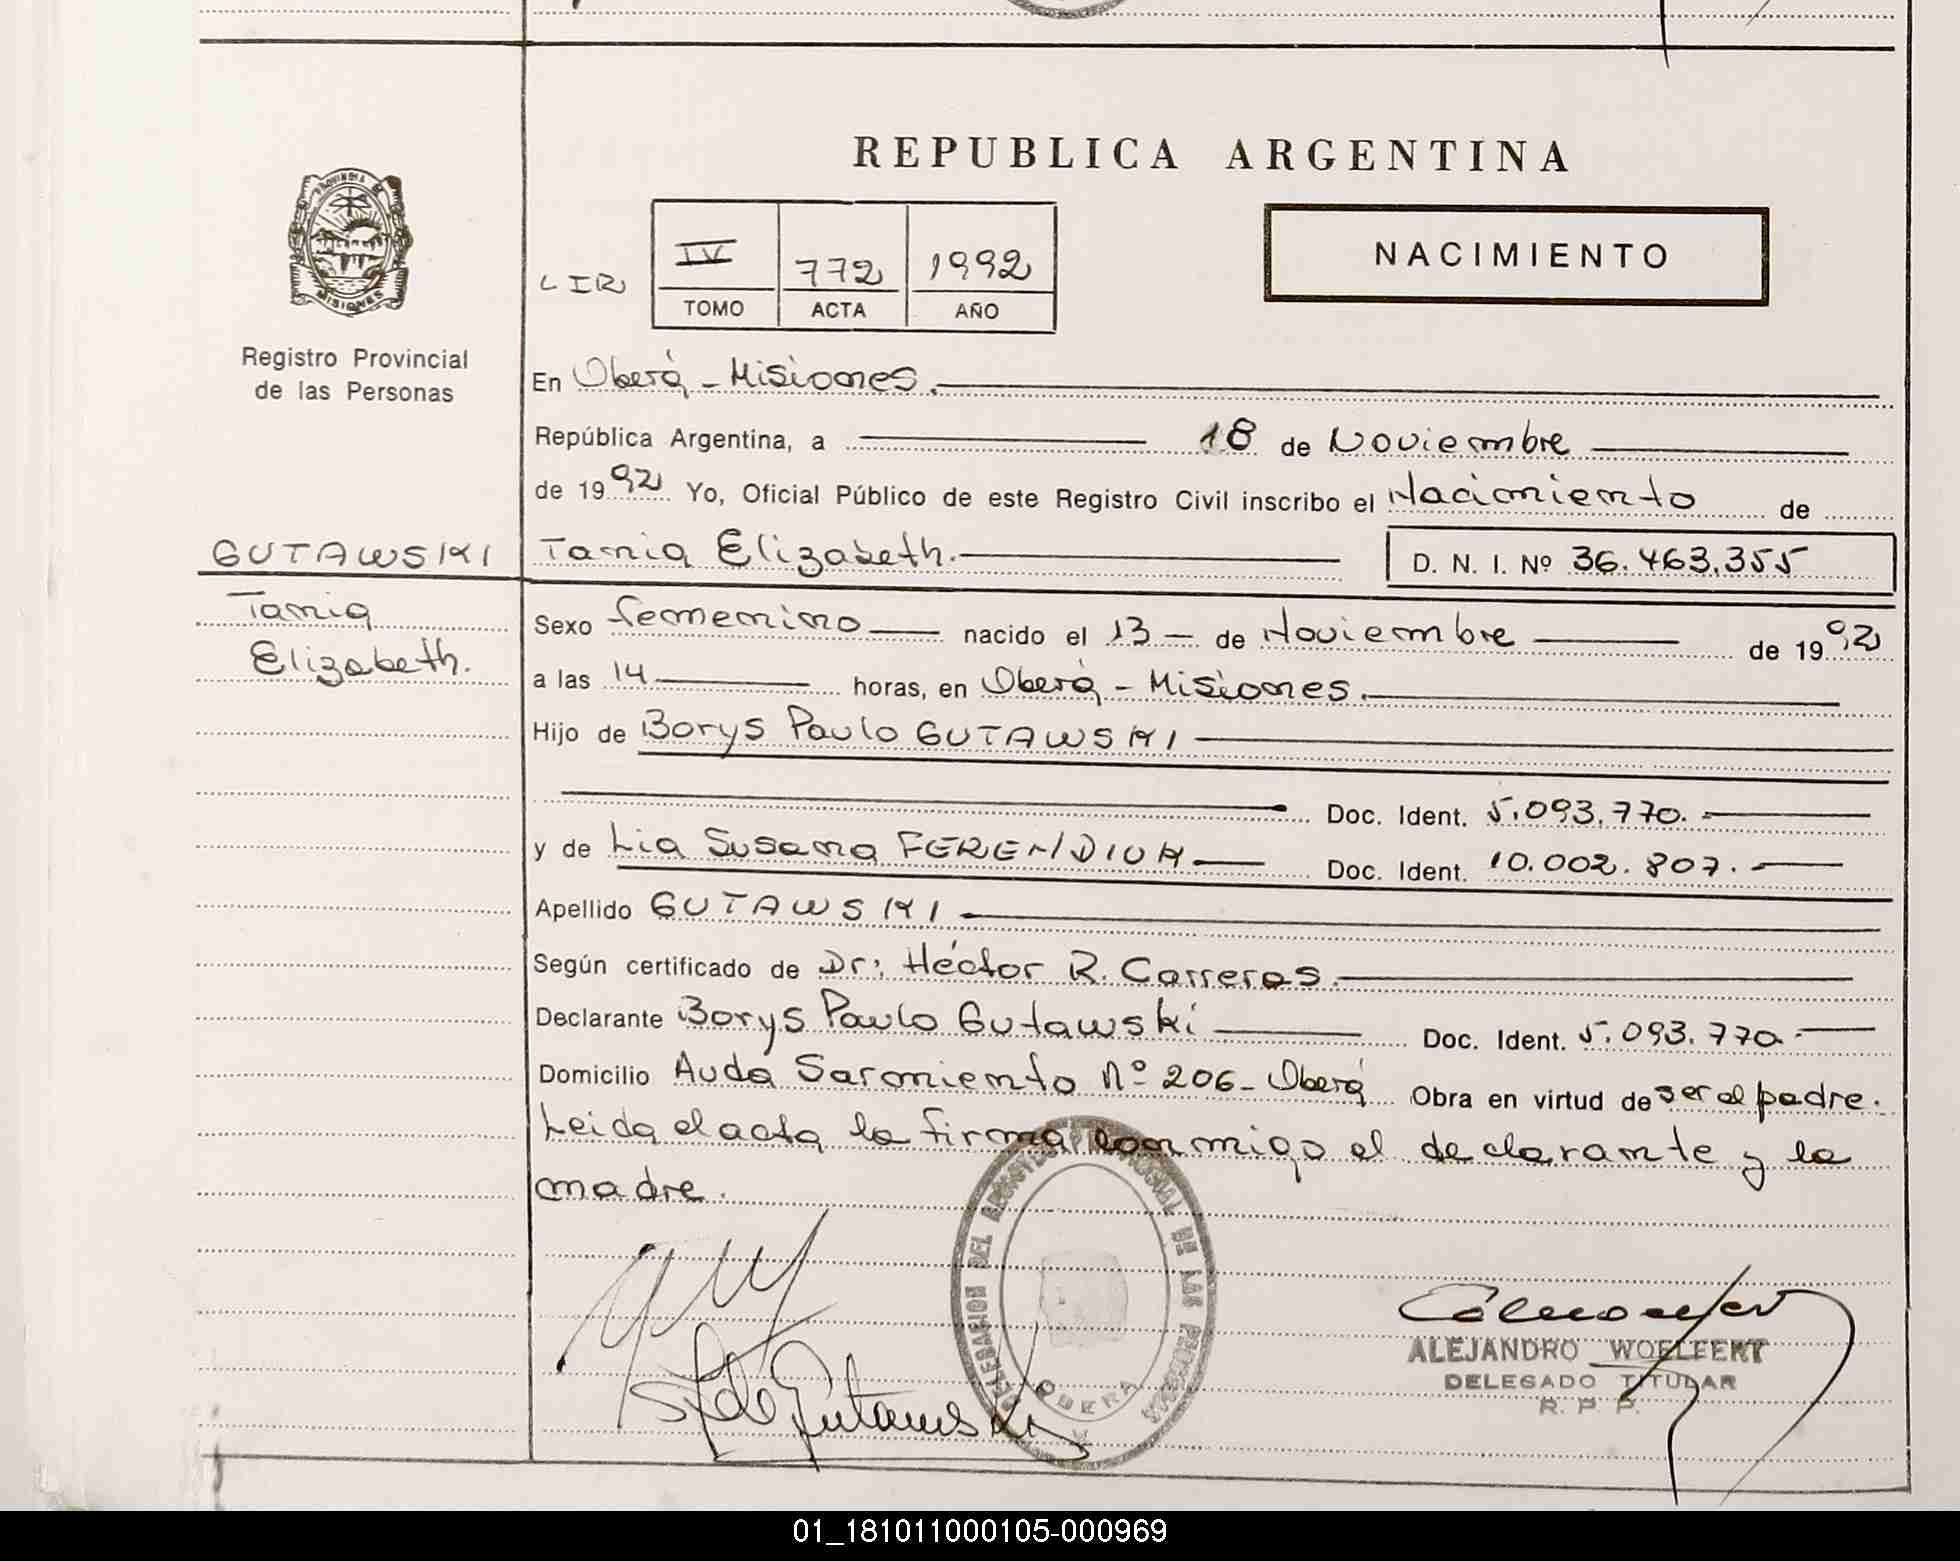 REPUBLICA ARGENTINA
PROVINCIA DE
MISIONES
Registro Provincial
de las Personas
NACIMIENTO
LIR
IV 772 1992
TOMO ACTA AÑO
En Oberá - Misiones.
República Argentina, a 18 de Noviembre
de 1992 Yo, Oficial Público de este Registro Civil inscribo el Nacimiento de
GUTAWSKI
Tania
Elizabeth.
Tania Elizabeth. D. N. I. Nº 36.463.355
Sexo femenino nacido el 13 de Noviembre de 1992
a las 14 horas, en Oberá - Misiones.
Hijo de Borys Paulo GUTAWSKI
Doc. Ident. 5.093.770.
y de Lia Susana FERENDIUK Doc. Ident. 10.002.807.
Apellido GUTAWSKI
Según certificado de Dr: Héctor R. Carreras.
Declarante Borys Paulo Gutawski Doc. Ident. 5.093.770.
Domicilio Avda Sarmiento Nº 206 - Oberá Obra en virtud de ser el padre.
Leida el acta la firma conmigo el declarante y la
madre.
DEL REGISTRO PROVINCIAL DE LAS PERSONAS
OBERA
de Gutawski
ALEJANDRO WOELFERT
DELEGADO TITULAR
R. P. P.
01_181011000105-000969